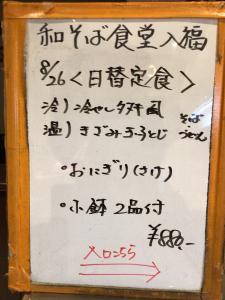 和そば食堂入福
8/26<日替定食>
冷)冷やしタヌキ風
温)きざみきつねとじ
そば
うどん
・おにぎり(さけ)
・小鉢 2品付
¥880.-
入口こちら